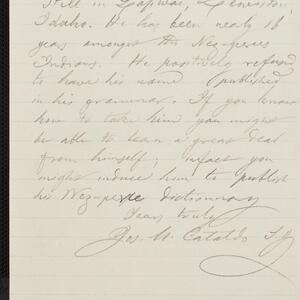 still in Lapwai, Lewiston,
Idaho. He has been nearly 16
years amongst the Nez-perces
Indians. He positively refused
to have his name published
in his grammar. If you know
how to take him you might
be able to learn a great deal
from himself; infact you
might induce him to publish
his Nez-perce dictionary
Yours truly
Jos. M. Cataldo S.J